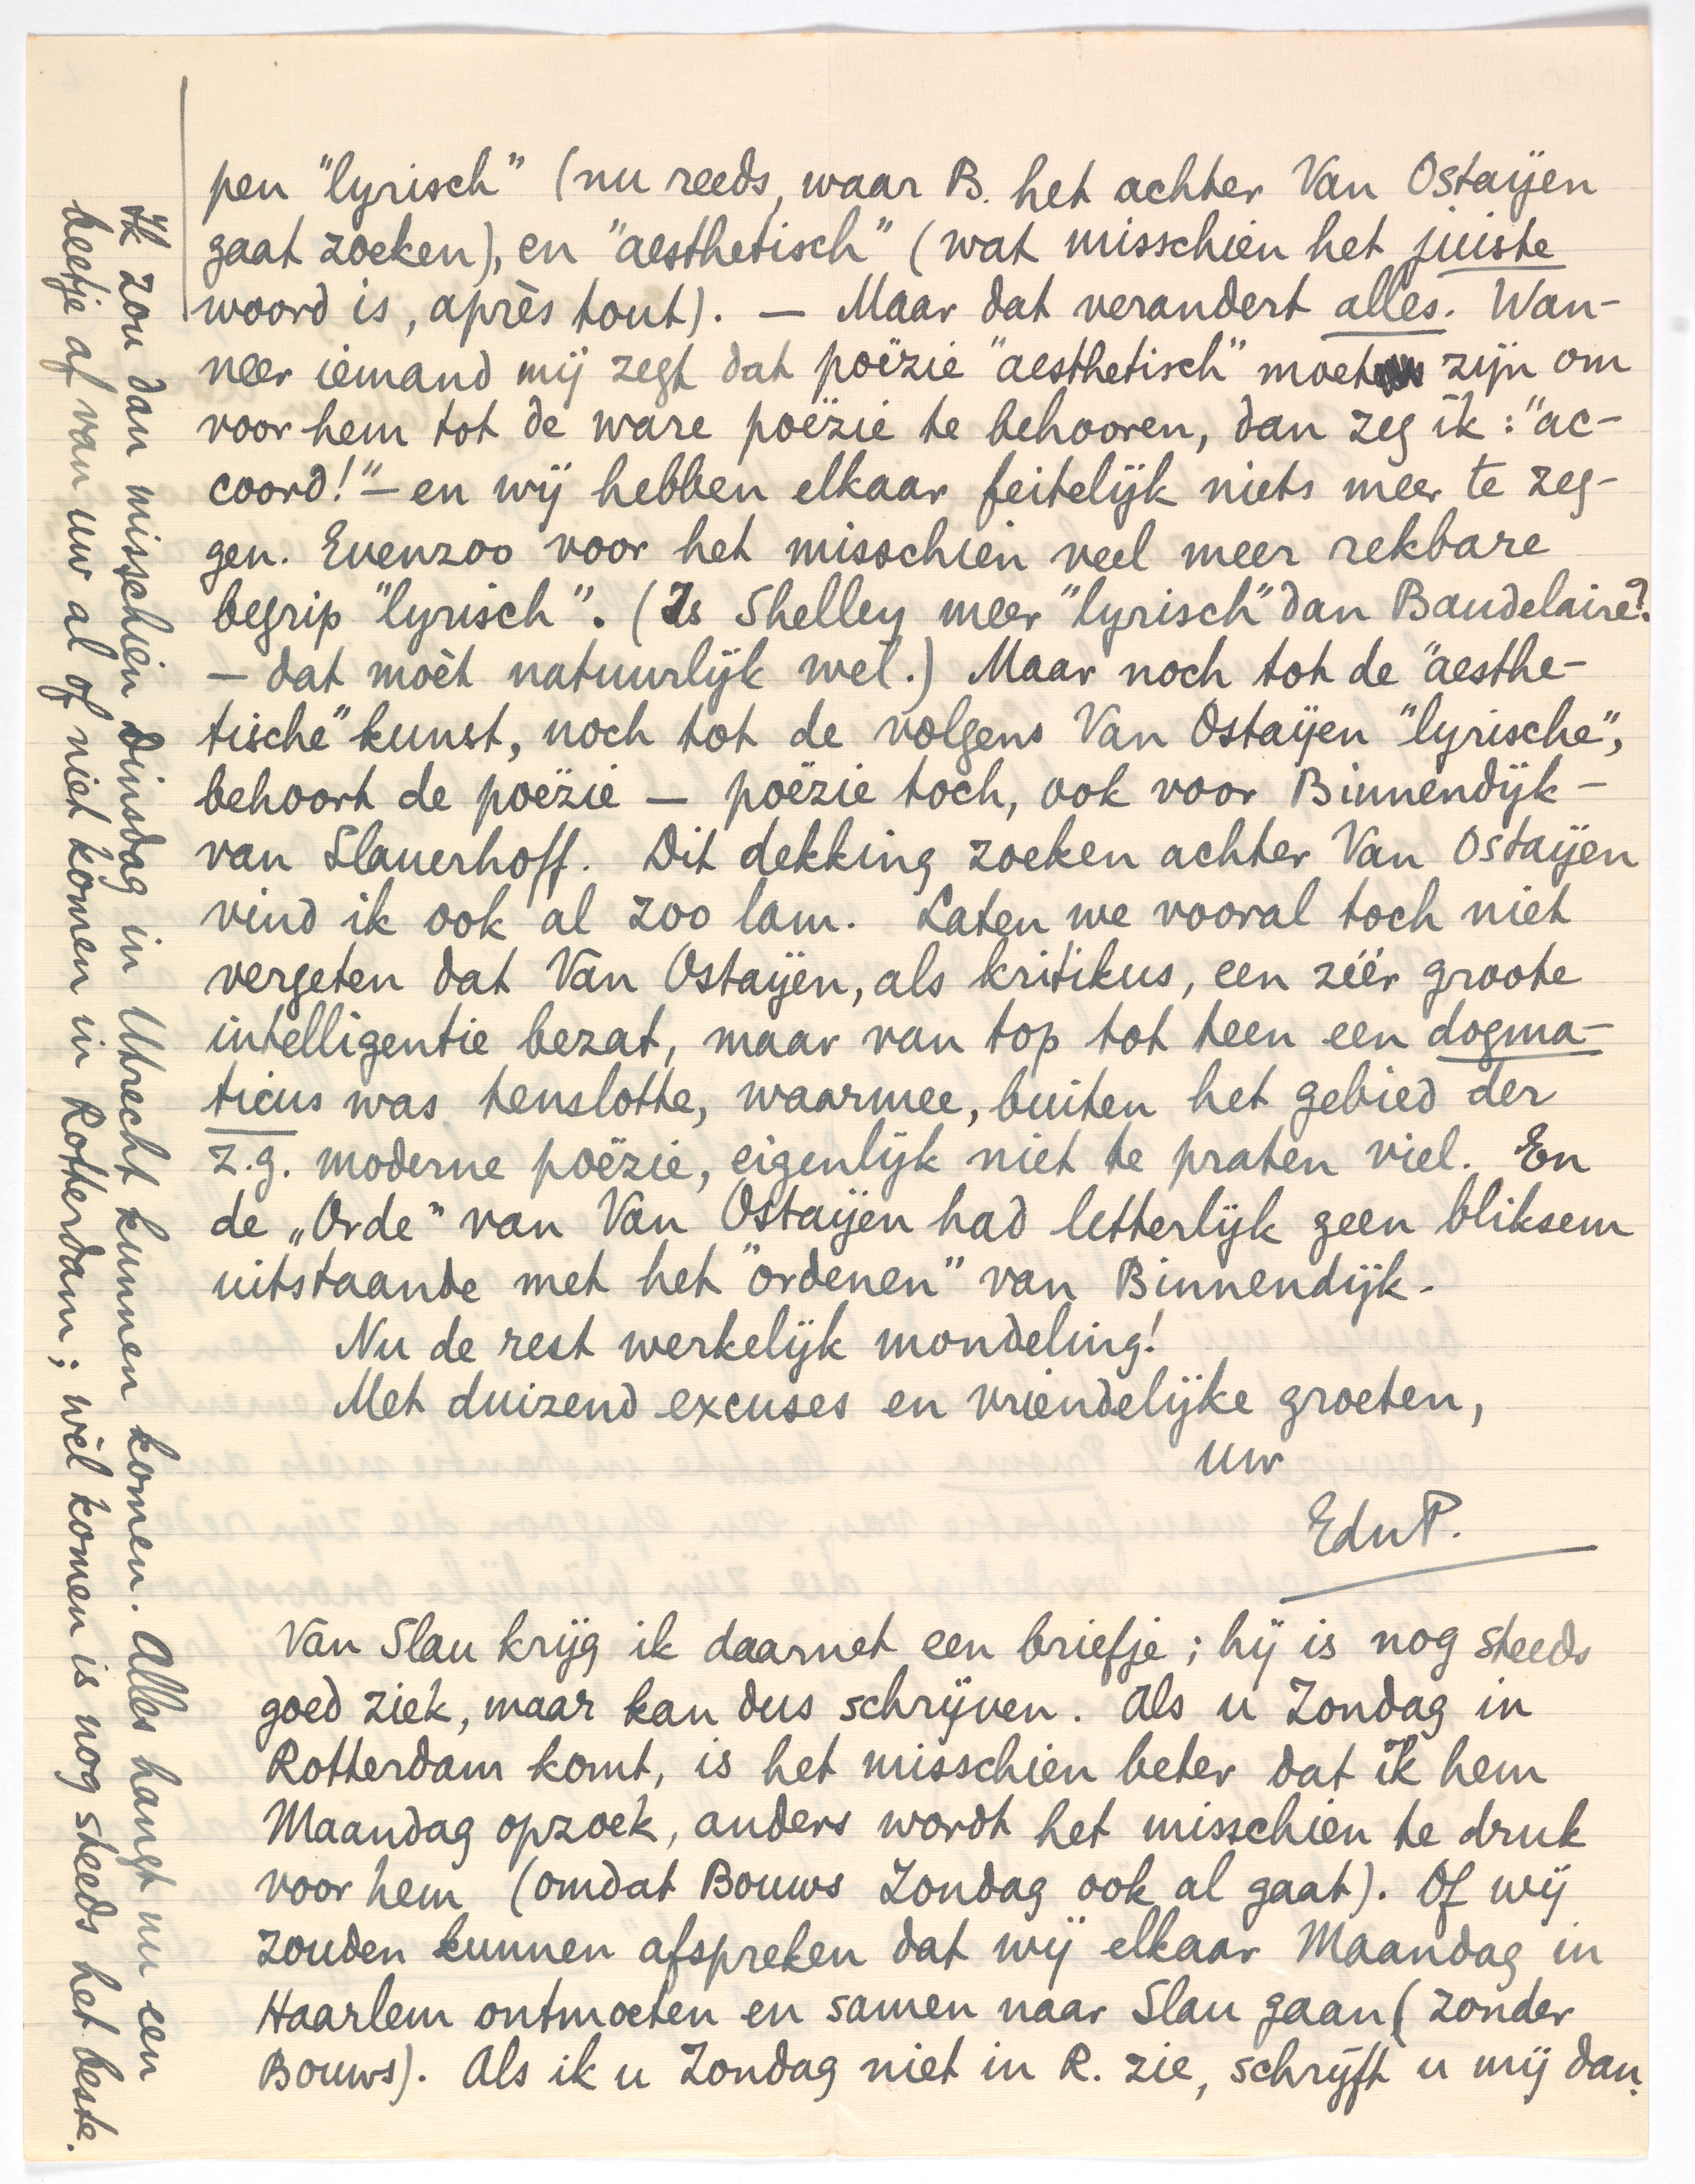 pen "lyrisch" (nu reeds, waar B. het achter Van Ostaÿen
gaat zoeken), en "aesthetisch" (wat misschien het juiste
woord is, après tout). — Maar dat verandert alles. Wan-
neer iemand mij zegt dat poëzie "aesthetisch" moet zijn om
voor hem tot de ware poëzie te behooren, dan zeg ik: "ac-
coord!" — en wij hebben elkaar feitelijk niets meer te zeg-
gen. Evenzoo voor het misschien veel meer rekbare
begrip "lyrisch". (Is Shelley meer "lyrisch" dan Baudelaire?
— dat moèt natuurlijk wel.) Maar noch tot de "aesthe-
tische" kunst, noch tot de volgens Van Ostaÿen "lyrische",
behoort de poëzie — poëzie toch, ook voor Binnendijk —
van Slauerhoff. Dit dekking zoeken achter Van Ostaÿen
vind ik ook al zoo lam. Laten we vooral toch niet
vergeten dat Van Ostaÿen, als kritikus, een zéér groote
intelligentie bezat, maar van top tot teen een dogma-
ticus was tenslotte, waarmee, buiten het gebied der
z.g. moderne poëzie, eigenlijk niet te praten viel. En
de „Orde" van Van Ostaÿen had letterlijk geen bliksem
uitstaande met het "ordenen" van Binnendijk.
Nu de rest werkelijk mondeling!
Met duizend excuses en vriendelijke groeten,
uw
EduP.
Van Slau krijg ik daarnet een briefje; hij is nog steeds
goed ziek, maar kan dus schrijven. Als u Zondag in
Rotterdam komt, is het misschien beter dat ik hem
Maandag opzoek, anders wordt het misschien te druk
voor hem (omdat Bouws Zondag ook al gaat). Of wij
zouden kunnen afspreken dat wij elkaar Maandag in
Haarlem ontmoeten en samen naar Slau gaan (zonder
Bouws). Als ik u Zondag niet in R. zie, schrijft u mij dan?
Ik zou dan misschien Dinsdag in Utrecht kunnen komen. Alles hangt nu een
beetje af van uw al of niet komen in Rotterdam; wèl komen is nog steeds het beste.